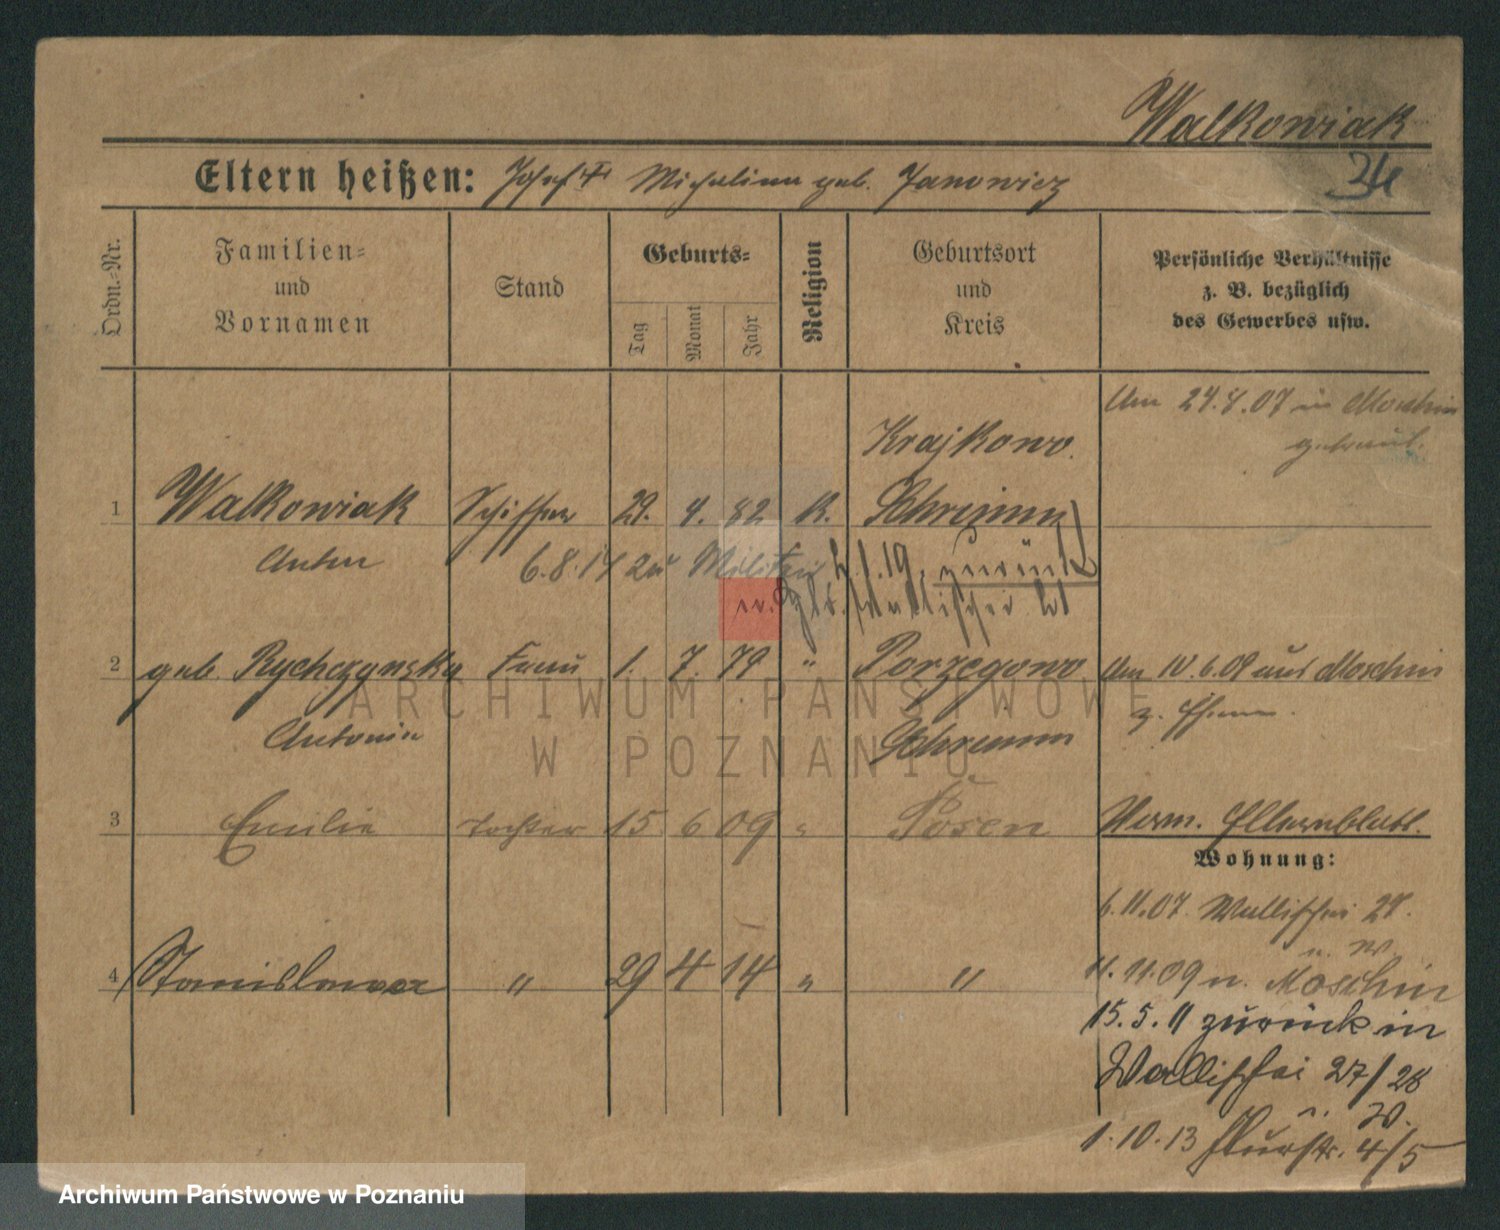 Walkowiak
34
Eltern heißen: Josef † Michalina geb. Janowicz
Ordn.-Nr.
Familien-
und
Vornamen
Stand
Geburts-
Tag
Monat
Jahr
Religion
Geburtsort
und
Kreis
Persönliche Verhältnisse
z. B. bezüglich
des Gewerbes usw.
Am 24.8.07 in Moschin
getraut.
Krajkowo.
1 Walkowiak Schiffer 29. 4. 82 K. Schrimm
Anton
6.8.14 zu Militär 2.1.19. zurück
2 geb. Rychczynska Frau 1. 7. 79 " Porzegowo Am 10.6.09 aus Moschin
z. Ehem.
Antonie Schrimm
3 Emilie Tochter 15 6 09 " Posen Verm. Elternblatt.
Wohnung:
6.11.07. Wallischei 28.
u. W
4 Stanislawa " 29 4 14 " " 11.11.09 n. Moschin
15.5.11 zurück in
Wallischei 27/28
W.
1.10.13 Flurstr. 4/5
ARCHIWUM PAŃSTWOWE
W POZNANIU
Archiwum Państwowe w Poznaniu